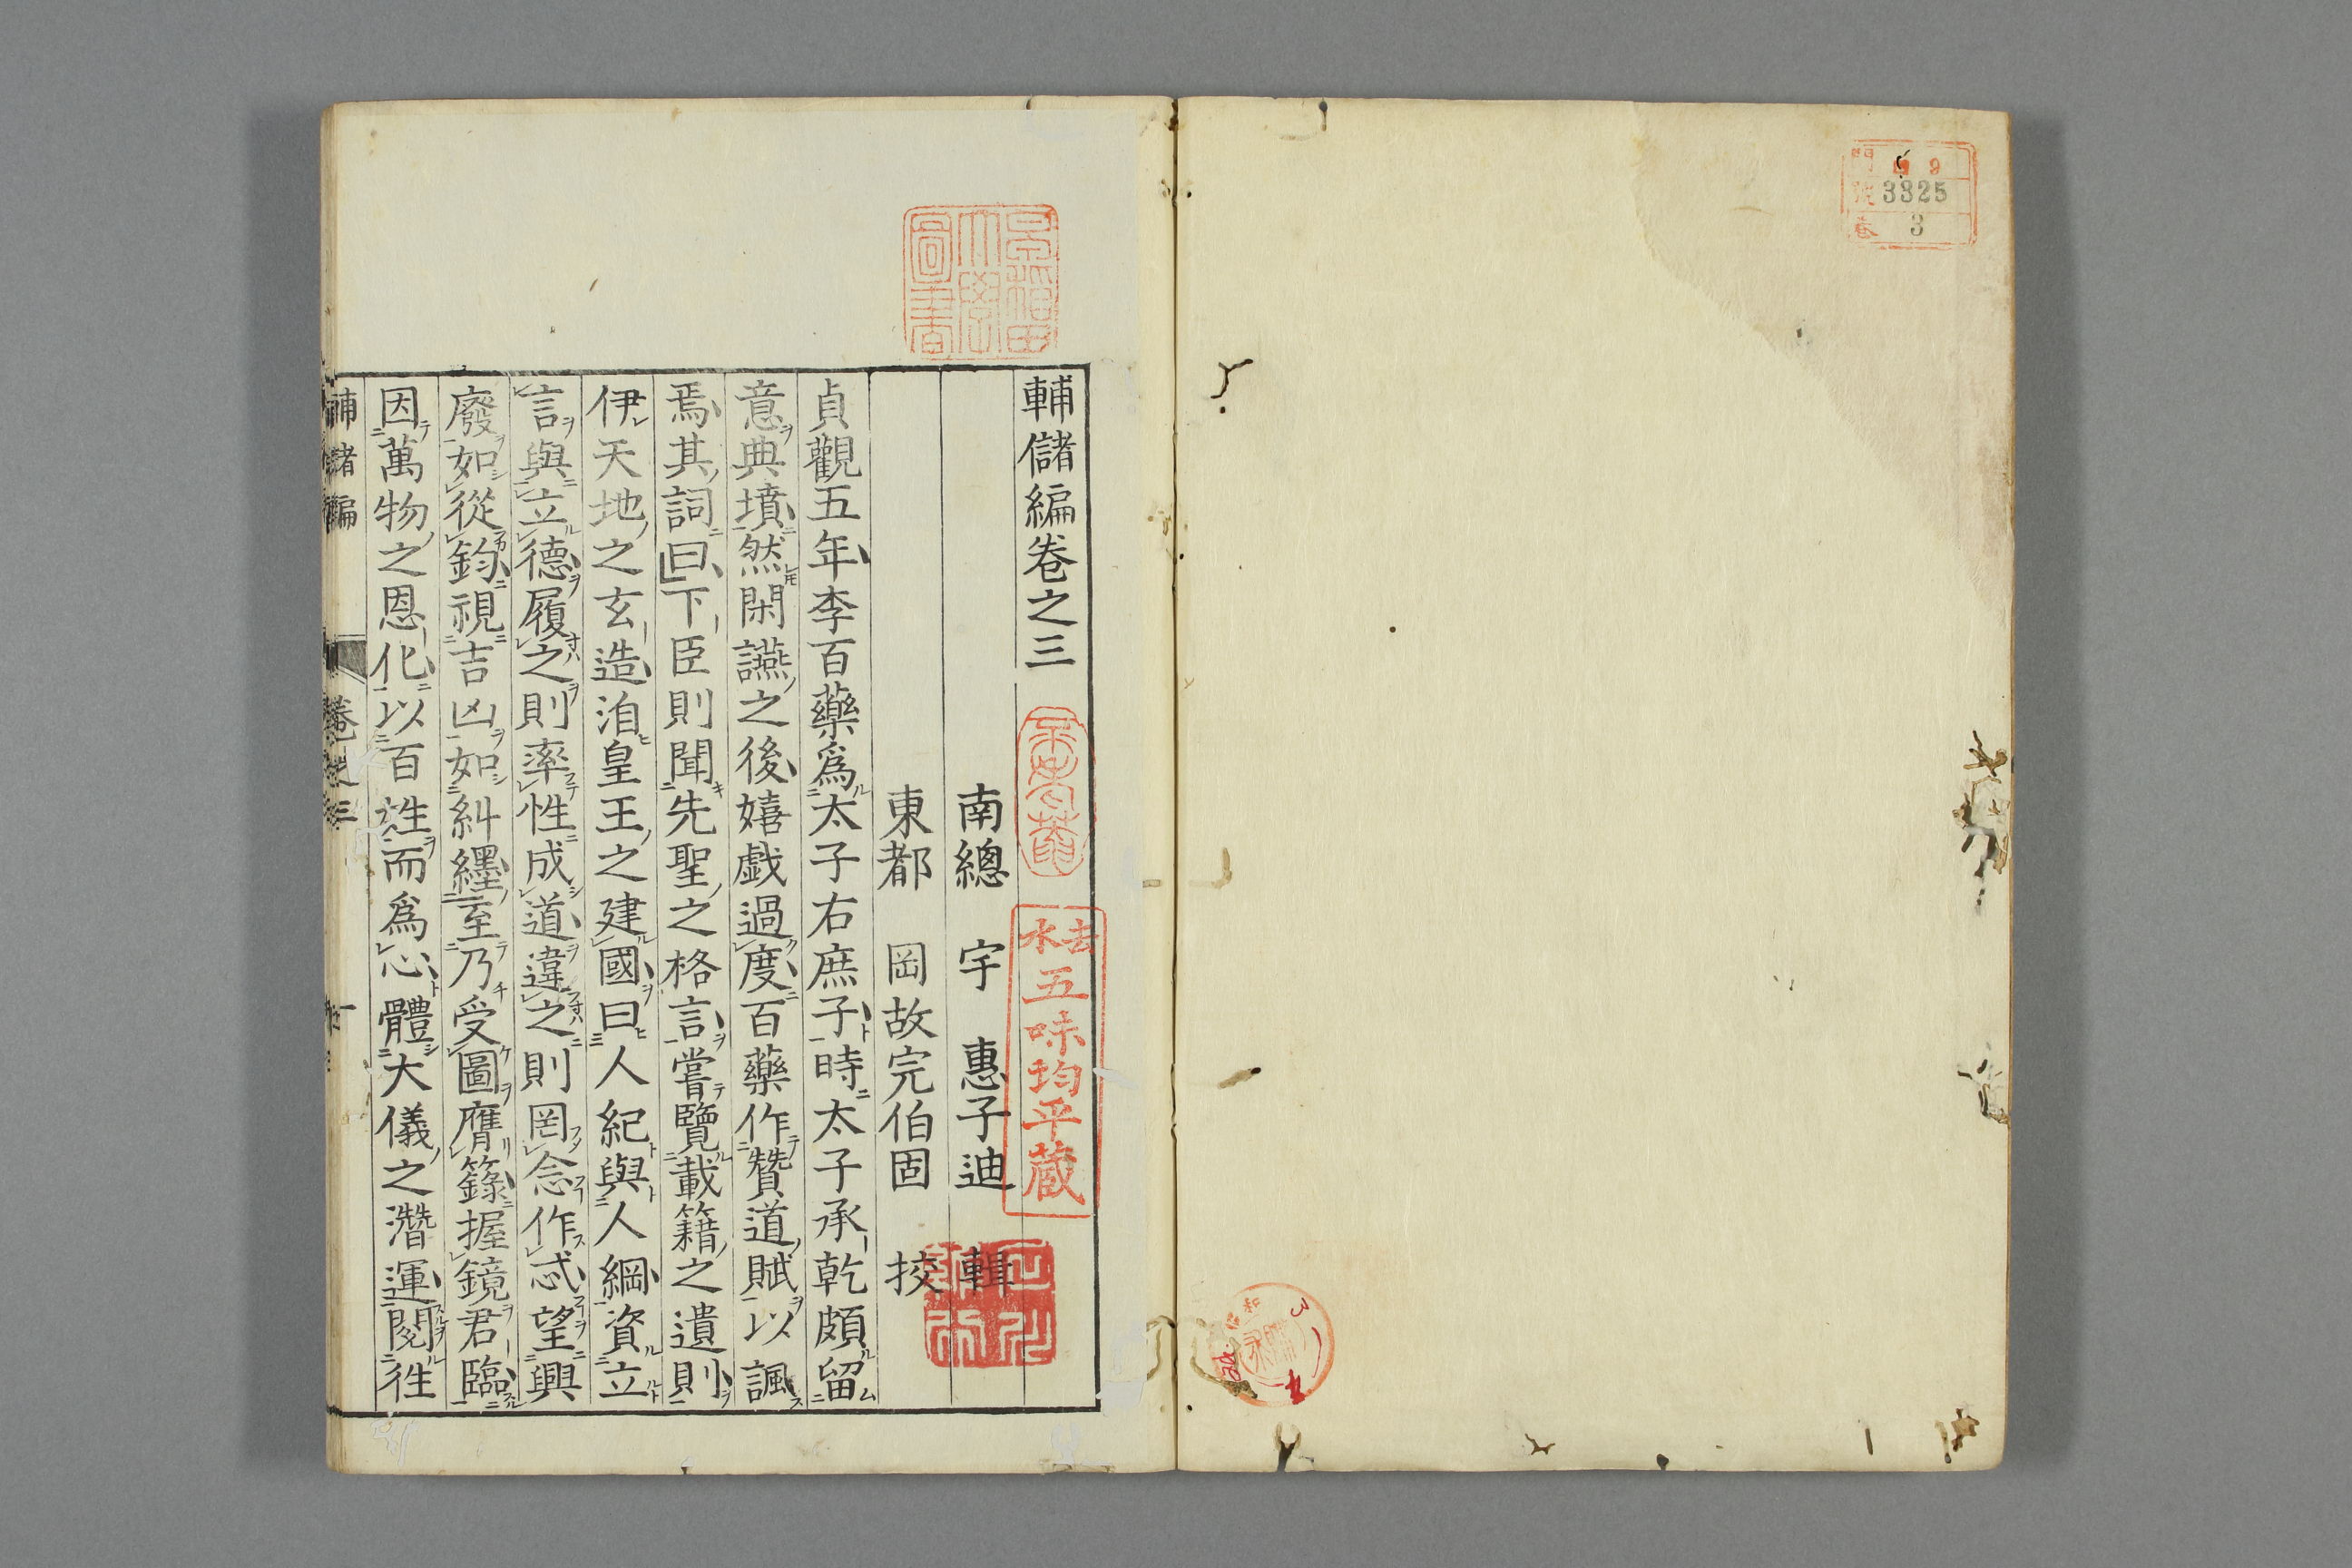 門 9
號 3325
卷 3
早稲田大學圖書
輔儲編卷之三
去水五味均平蔵
南總 宇 惠子迪 輯
東都 岡故完伯固 挍
貞觀五年李百藥爲太子右庶子時太子承乾頗留
意典墳然閑讌之後嬉戯過度百藥作贊道賦以諷
焉其詞曰下臣則聞先聖之格言嘗覽載籍之遺則
伊天地之玄造洎皇王之建國曰人紀與人綱資立
言與立德履之則率性成道違之則罔念作忒望興
廢如從鈞視吉凶如糾纆至乃受圖膺籙握鏡君臨
因萬物之恩化以百姓而爲心體大儀之潛運閱徃